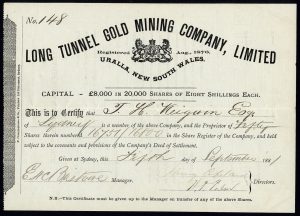 No. 148
LONG TUNNEL GOLD MINING COMPANY, LIMITED
Registered Aug., 1870,
URALLA, NEW SOUTH WALES.
CAPITAL - £8,000 IN 20,000 SHARES OF EIGHT SHILLINGS EACH.
This is to Certify that T. H.
of Sydney is a member of the above Company, and the Proprietor of Fifty
Shares therein numbered in the Share Register of the Company, and held
subject to the covenants and provisions of the Company's Deed of Settlement.
Given at Sydney, this Fifth day of September
Manager.
Directors.
N.B.—This Certificate must be given up to the Manager on transfer of any of the above Shares.